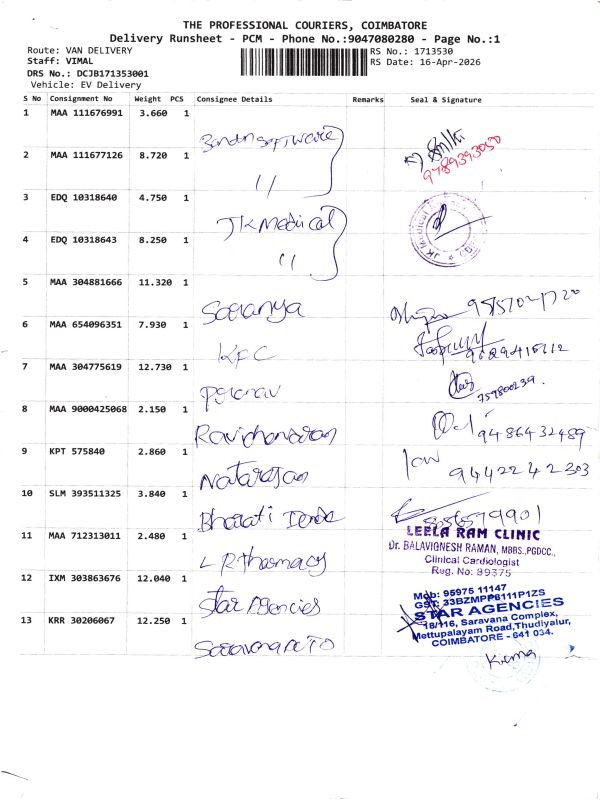 THE PROFESSIONAL COURIERS, COIMBATORE
Delivery Runsheet - PCM - Phone No.:9047080280 - Page No.:1
Route: VAN DELIVERY
Staff: VIMAL
DRS No.: DCJB171353001
Vehicle: EV Delivery
RS No.: 1713530
RS Date: 16-Apr-2026
S No Consignment No Weight PCS Consignee Details Remarks Seal & Signature
1 MAA 111676991 3.660 1 software
2 MAA 111677126 8.720 1 "
9789393050
3 EDQ 10318640 4.750 1 JK Medical
4 EDQ 10318643 8.250 1 "
JK Medical
5 MAA 304881666 11.320 1 Saranya
6 MAA 654096351 7.930 1 KFC
7 MAA 304775619 12.730 1
759800239.
8 MAA 9000425068 2.150 1 Ravichandran
9486432489
9 KPT 575840 2.860 1 Natarajan
9442242303
10 SLM 393511325 3.840 1 Bharati
8056579901
11 MAA 712313011 2.480 1 L R Pharmacy
LEELA RAM CLINIC
Dr. BALAVIGNESH RAMAN, MBBS.,PGDCC.,
Clinical Cardiologist
Reg. No: 89375
12 IXM 303863676 12.040 1 Star Agencies
Mob: 95975 11147
GST: 33BZMPP8111P1ZS
STAR AGENCIES
18/116, Saravana Complex,
Mettupalayam Road,Thudiyalur,
COIMBATORE - 641 034.
13 KRR 30206067 12.250 1 Saravana